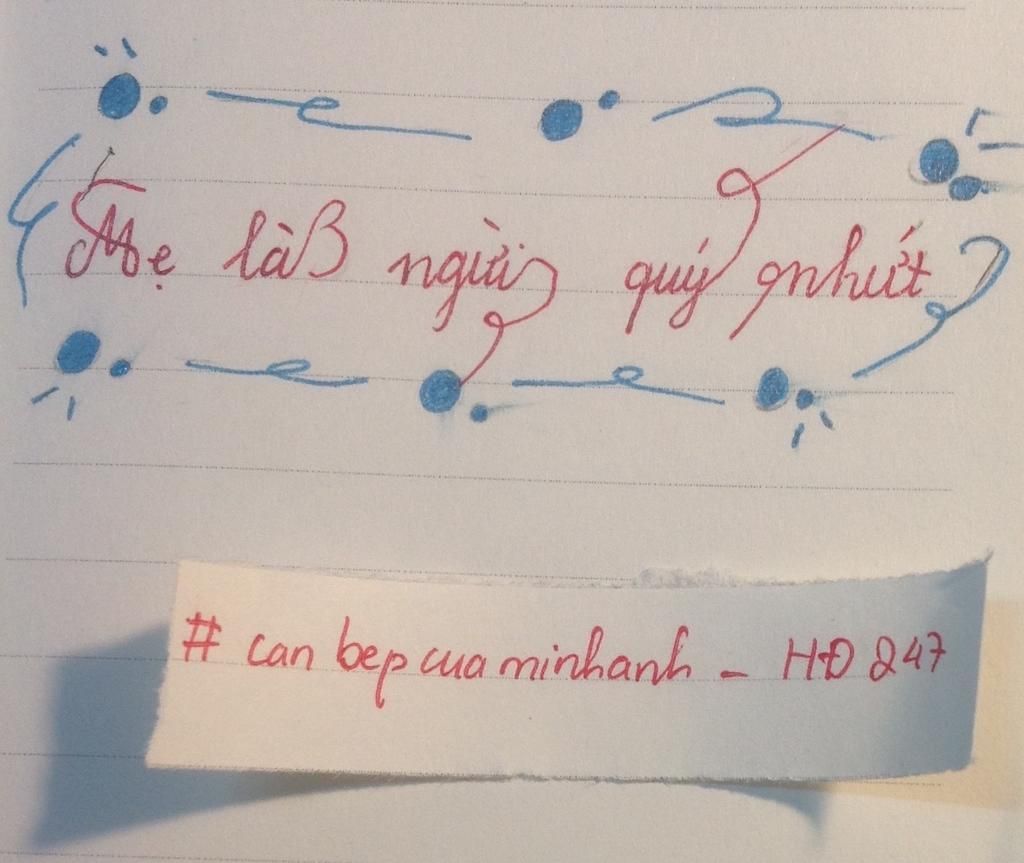 Mẹ là người quý nhứt
# can bep cua minhanh - HĐ 247